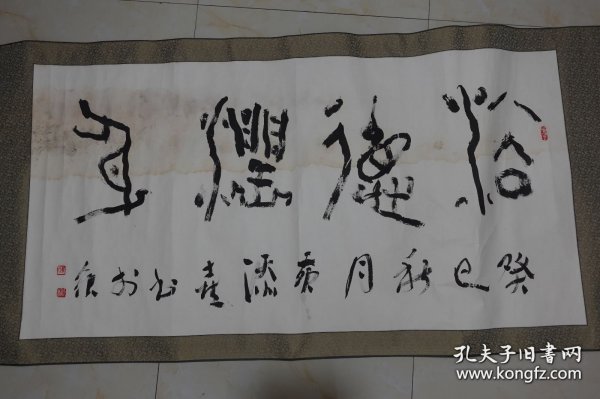 浴德潤身
癸巳秋月黄添喜书於
孔夫子旧书网
www.kongfz.com